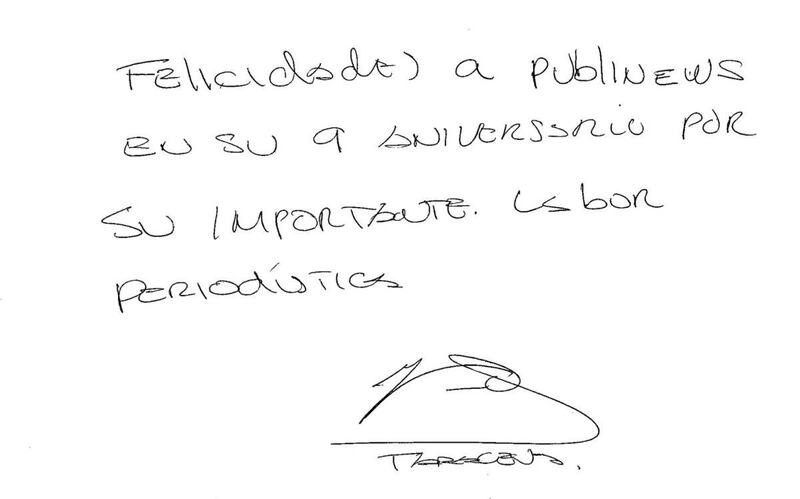 Felicidades a PUBLINEWS
EN SU 9 ANIVERSARIO POR
SU IMPORTANTE. LABOR
PERIODÍSTICA
TARACENA.